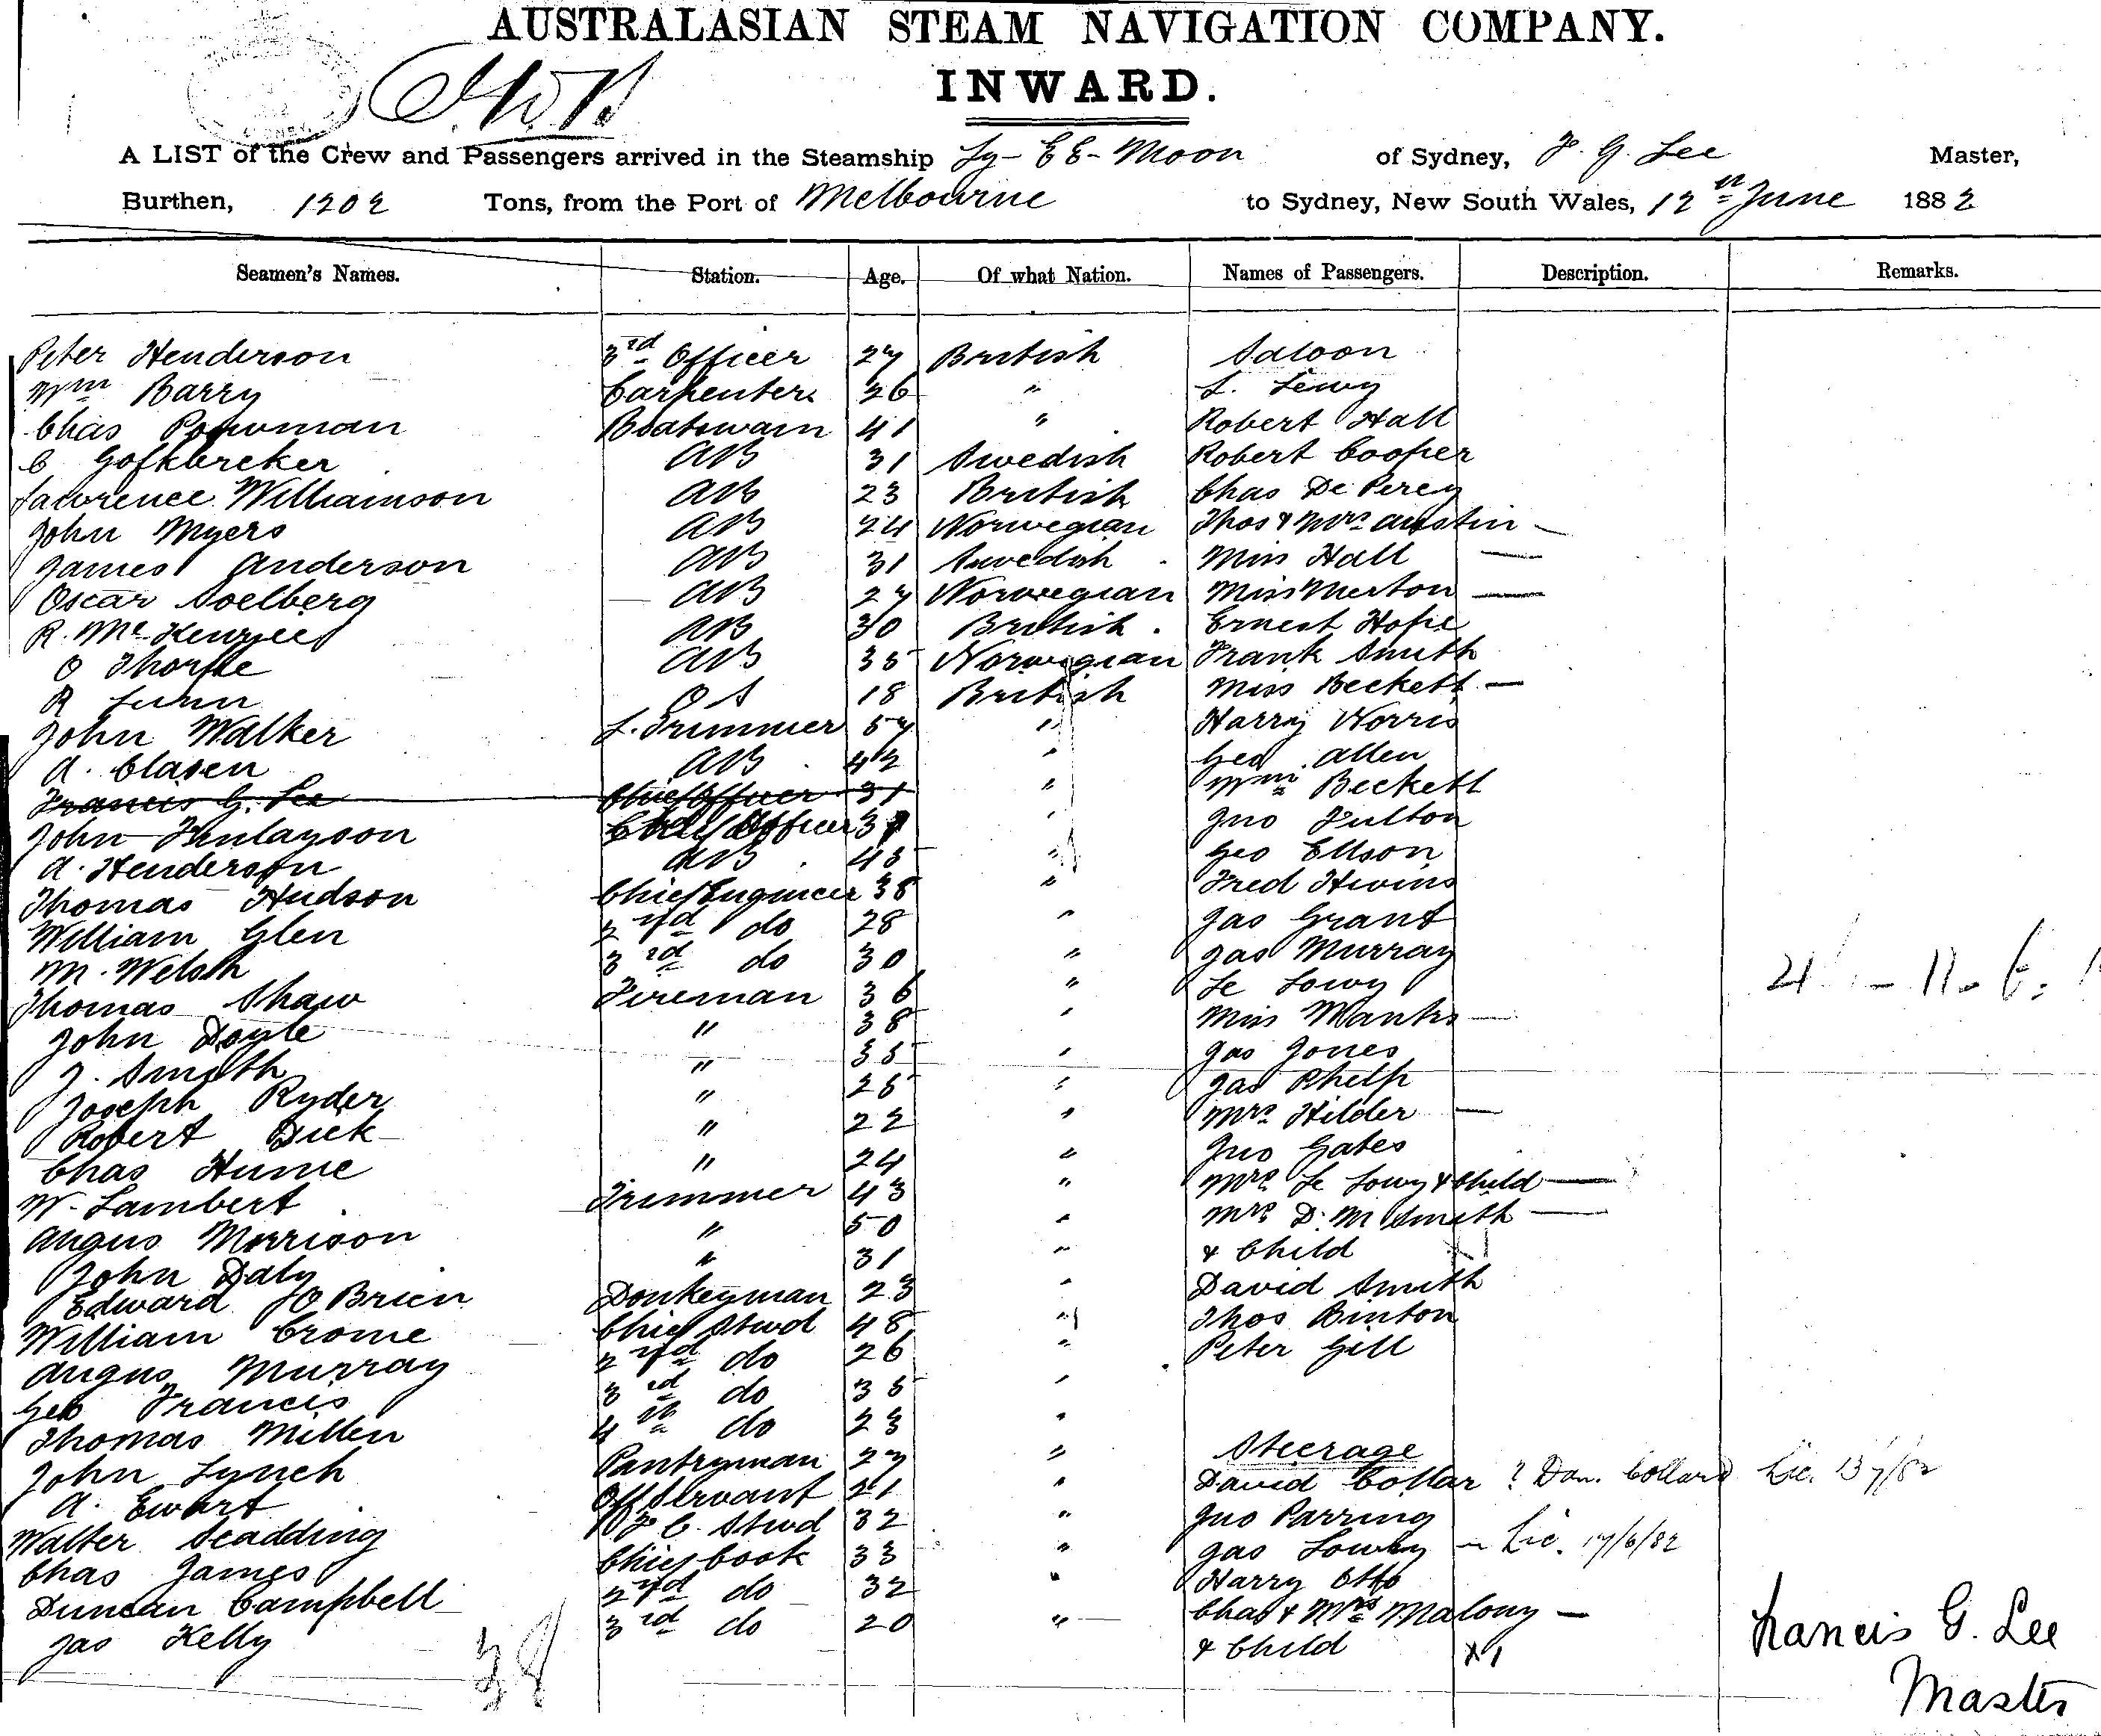 AUSTRALASIAN STEAM NAVIGATION COMPANY.
INWARD.
A LIST of the Crew and Passengers arrived in the Steamship Ly-EE-Moon of Sydney, F. G. Lee Master,
Burthen, 1202 Tons, from the Port of Melbourne to Sydney, New South Wales, 12th June 1882
Seamen's Names. Station. Age. Of what Nation. Names of Passengers. Description. Remarks.
Peter Henderson 3rd Officer 27 British Saloon
Wm Barry Carpenter 26 " L. Lewy
Chas 41 " Robert Hall
C AB 31 Swedish Robert Cooper
Lawrence Williamson AB 23 British Chas De Percy
John Myers AB 24 Norwegian Thos & Mrs Austin —
James Anderson AB 31 Swedish Miss Hall —
Oscar Soelberg AB 27 Norwegian Miss Merton —
R. McKenzie AB 30 British Ernest Hope
O Thorpe AB 35 Norwegian Frank Smith
R Lunn OS 18 British Miss Beckett —
John Walker L. Trimmer 57 " Harry Norris
A. Clasen AB 42 " Geo Allen
Francis G. Lee Chief Officer 31 " Wm Beckett
John Finlayson Chief Officer " Jno Fulton
A. Henderson AB 45 " Geo Ellson
Thomas Hudson Chief Engineer 38 " Fred Hivins
William Glen 2nd do 28 " Jas Grant
M. Welsh 3rd do 30 " Jas Murray
Thomas Shaw Fireman 36 " Le Lowy
John Doyle " 38 " Miss Manks —
J. Smith " 35 " Jas Jones
Joseph Ryder " 25 " Jas Phelp
Robert Dick " 22 " Mrs Hilder —
Chas Hume " 24 " Jno Gates
W. Lambert Trimmer 43 " Mrs Le Lowy & Child —
Angus Morrison " 50 " Mrs D. M Smith —
John Daly " 31 " & Child
Edward O'Brien Donkeyman 23 " David Smith
William Crome Chief Stwd 48 " Thos Binton
Angus Murray 2nd do 26 " Peter Gill
Geo Francis 3rd do 35 "
Thomas Millen 4th do 23 "
Steerage
John Lynch Pantryman 27 " David Collar ? Dan. Collard Lic.
A. Ewart Off Servant 21 " Jno Parring
Walter Scadding F. C. Stwd 32 " Jas Lowry — Lic. 17/6/82
Chas James Chief Cook 33 " Harry Otto
Duncan Campbell 2nd do 32 " Chas & Mrs Malony —
Jas Kelly 3rd do 20 " & Child
38
Francis G. Lee
Master